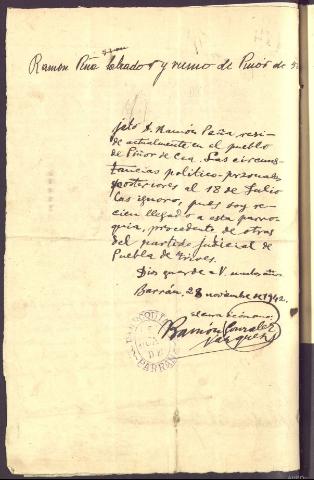 Ramón Peña labrador y vecino de Piñor de
jeto D. Ramón Peña, resi-
de actualmente en el pueblo
de Piñor de Cea. Las circuns-
tancias politico-personales
posteriores al 18 de Julio
las ignoro, pues soy re-
cien llegado a esta parro-
quia, procedente de otras
del partido judicial de
Puebla de Trives.
Dios guarde a V. muchos años
Barrán, 28 noviembre de 1942.
el cura ecónomo,
Ramón González
Vázquez
PARROQUIA
DE
BARRAN